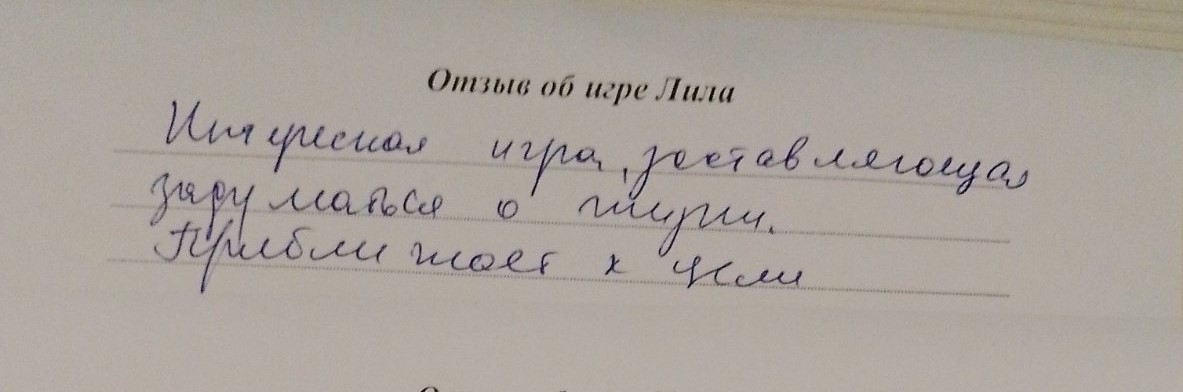 Отзыв об игре Лила
Интересная игра, заставляющая
задуматься о жизни.
Приближает к цели